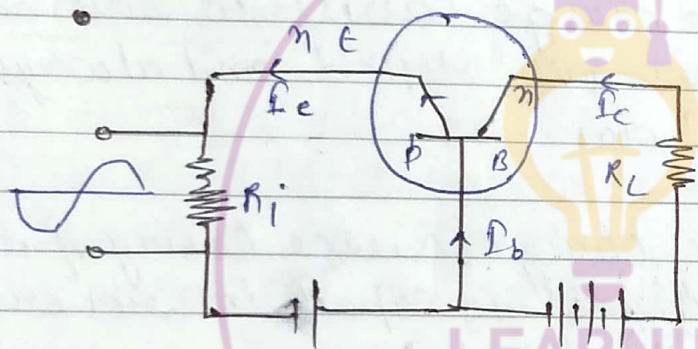 n E
Ie
n
Ic
P
B
RL
Ri
Ib
LEARNI